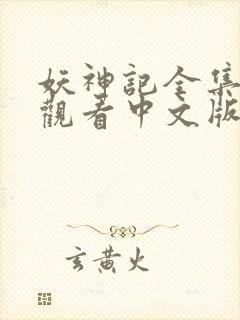 妖神記全集
觀看中文版
玄黃火